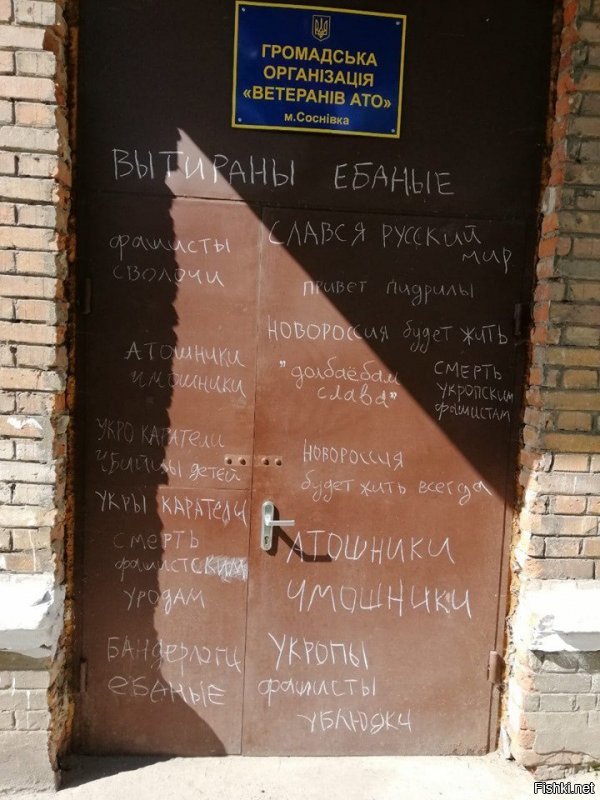 ГРОМАДСЬКА
ОРГАНІЗАЦІЯ
«ВЕТЕРАНІВ АТО»
м.Соснівка
ВЫТИРАНЫ ЕБАНЫЕ
фашисты
сволочи
СЛАВСЯ РУССКИЙ
мир
привет пидрилы
НОВОРОССИЯ будет жить
АТОШНИКИ
чмошники
"долбаёбам
слава"
СМЕРТЬ
укропским
фашистам
УКРО КАРАТЕЛИ
убийцы детей
НОВОРОССИЯ
будет жить всегда
УКРЫ КАРАТЕЛИ
СМЕРТЬ
фашистским
уродам
АТОШНИКИ
ЧМОШНИКИ
БАНДЕРЛОГИ
ЕБАНЫЕ
УКРОПЫ
фашисты
УБЛЮДКИ
Fishki.net